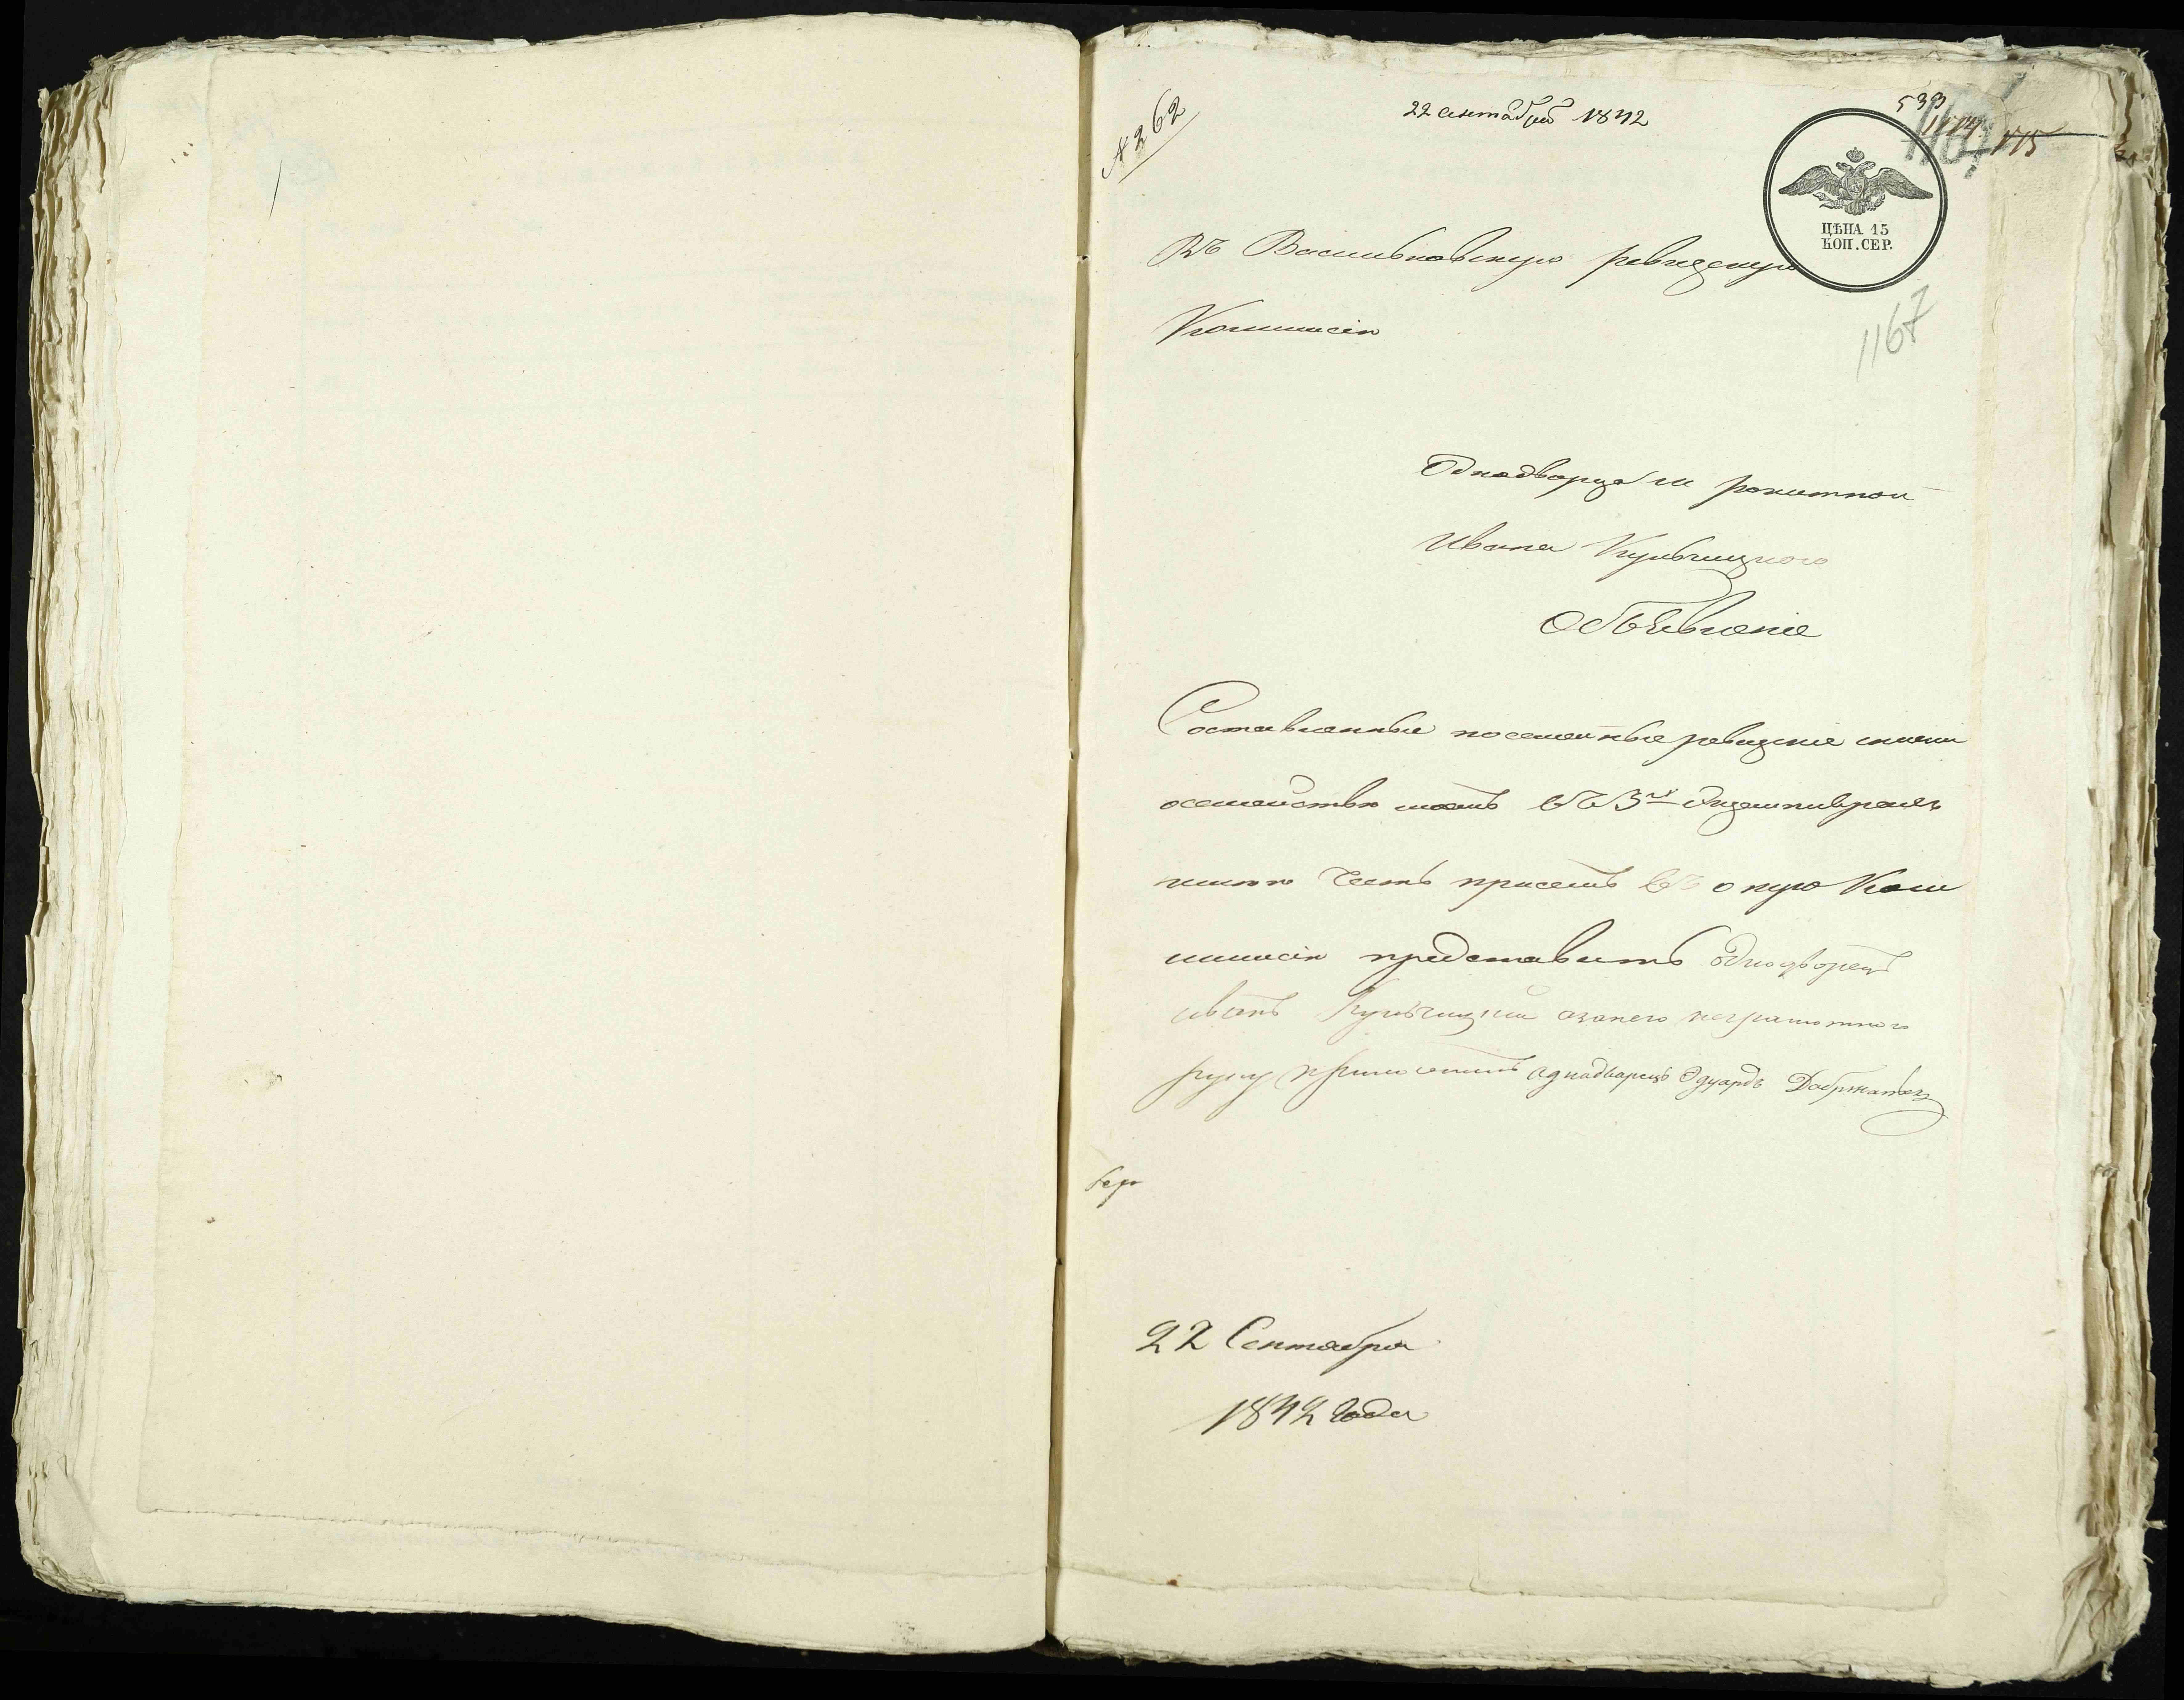 № 262
22 сентября 1842
533
1114
1115
ЦѢНА 15
КОП. СЕР.
Въ Васильковскую ревизскую
Коммисію
1167
Однодворца м Рокитной
Ивана Кульчицкого
Объявленіе
Составленные посемейные ревизскіе
осемействе моемъ въ 3хъ экземплярахъ
честь присемъ въ оную Ком
мисію представить однодворецъ
иванъ Кульчицкий азанего неграмотного
руку приложилъ аднадварецъ Эдуардъ
22 Сентября
1842 года